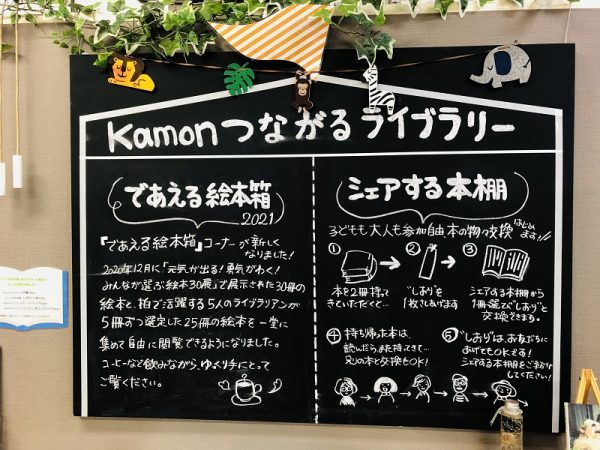 Kamonつながるライブラリー
であえる絵本箱
2021
『であえる絵本箱』コーナーが新しく
なりました!
2020年12月に「元気が出る!勇気がわく!
みんなが選ぶ絵本30展」で展示された30冊の
絵本と、柏で活躍する5人のライブラリアンが
5冊ずつ選定した25冊の絵本を一堂に
集めて自由に閲覧できるようになりました。
コーヒーなど飲みながら、ゆっくり手にとって
ご覧ください。
シェアする本棚
子どもも大人も参加自由 本の物々交換
はじめ
ます!!
①
本を2冊持って
きていただくと…
②
"しおり"を
1枚さしあげます
③
シェアする本棚から
1冊選び"しおり"と
交換できます。
④
持ち帰った本は、
読んだらまた持ってきて…
別の本と交換もOK!
⑤
"しおり"は、お友だちに
あげてもOKです!
シェアする本棚を
してください!